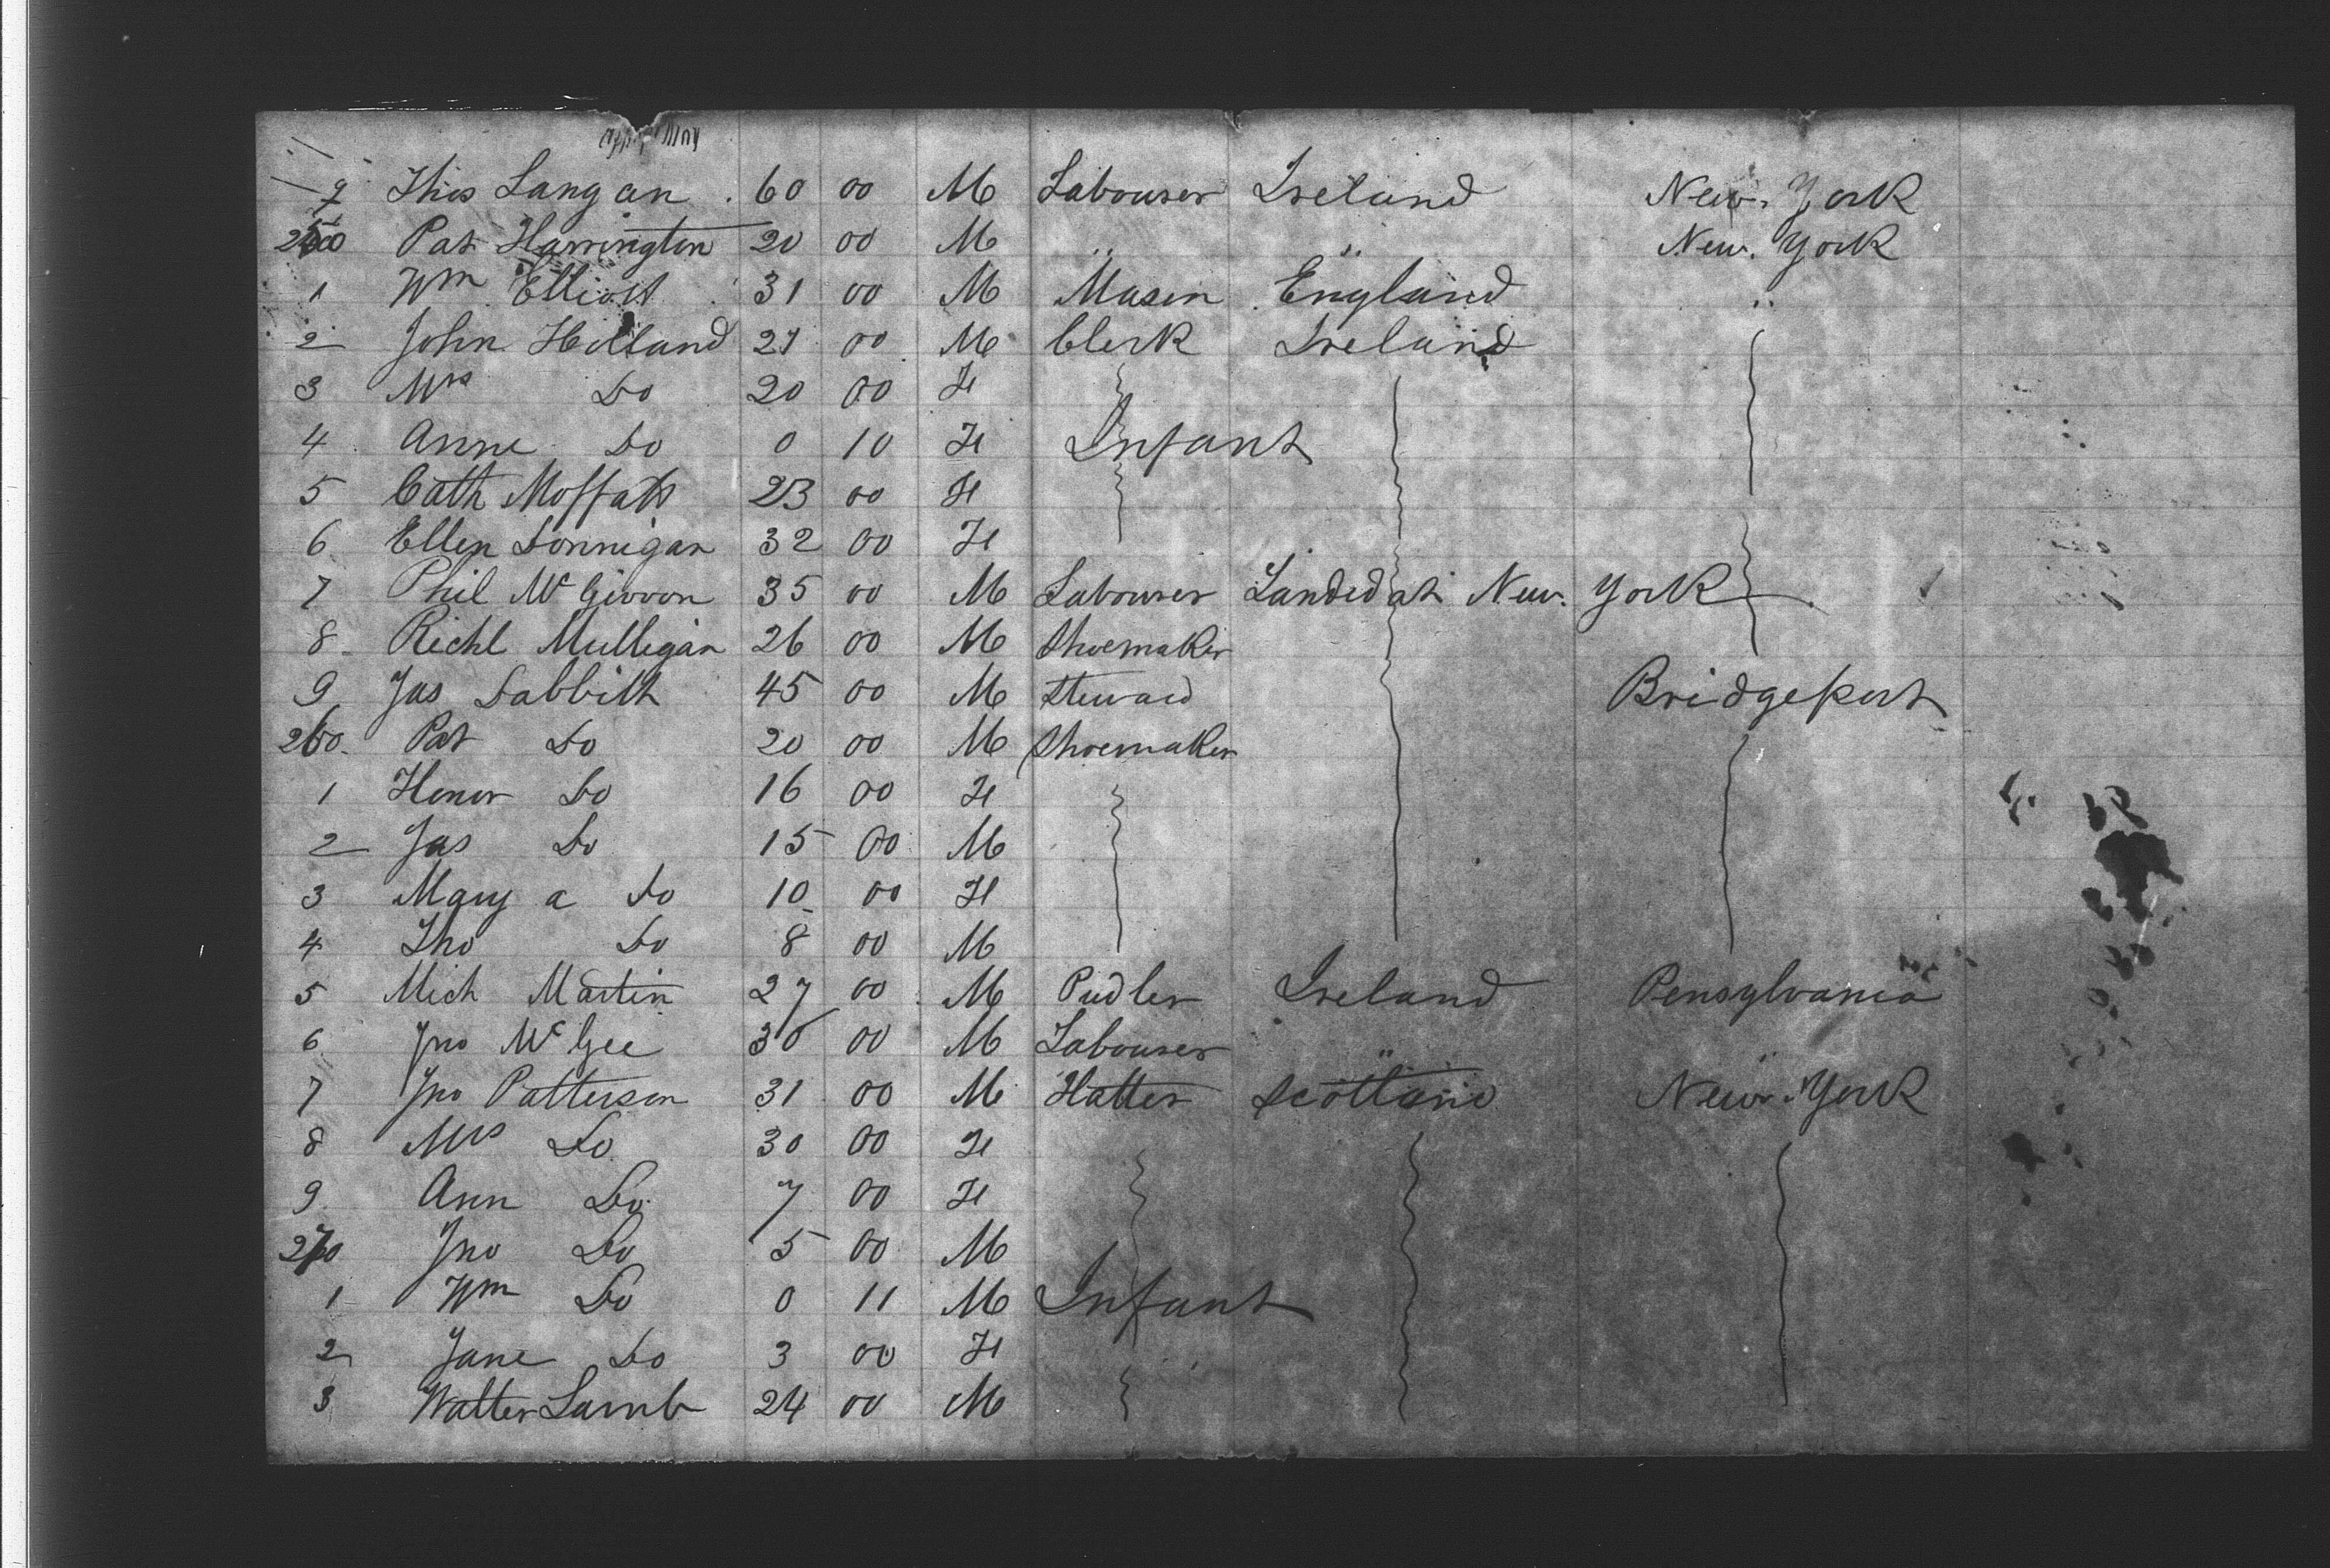 9 Thos Langan 60 00 M Labourer Ireland New York
250 Pat Harrington 20 00 M " " New York
1 Wm Elliott 31 00 M Mason England "
2 John Holland 27 00 M Clerk Ireland
3 Mrs Do 20 00 F
4 Anne Do 0 10 F Infant
5 Cath Moffatt 23 00 F
6 Ellen Donnigan 32 00 F
7 Phil McGivvon 35 00 M Labourer Landed at New York
8 Richd Mulligan 26 00 M Shoemaker
9 Jas Dabbitt 45 00 M Steward Bridgeport
260 Pat Do 20 00 M Shoemaker
1 Honor Do 16 00 F
2 Jas Do 15 00 M
3 Mary a Do 10 00 F
4 Tho Do 8 00 M
5 Mich Martin 27 00 M Pudler Ireland Pensylvania
6 Jno McGee 30 00 M Labourer " "
7 Jno Patterson 31 00 M Hatter Scotland New York
8 Mrs Do 30 00 F
9 Ann Do 7 00 F
270 Jno Do 5 00 M
1 Wm Do 0 11 M Infant
2 Jane Do 3 00 F
3 Walter Lamb 24 00 M